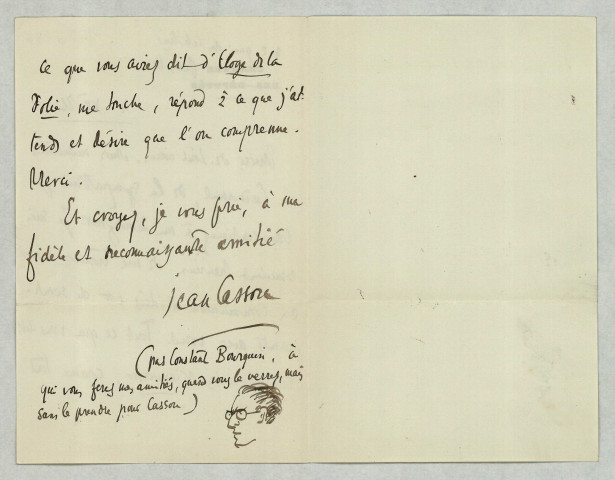 ce que vous avez dit d'Eloge de la
Folie, me touche, répond à ce que j'at
tends et désire que l'on comprenne.
Merci.
Et croyez, je vous prie, à ma
fidèle et reconnaissante amitié
Jean Cassou
(pas Constant Bourquin, à
qui vous ferez mes amitiés, quand vous le verrez, mais
sans le prendre pour Cassou)